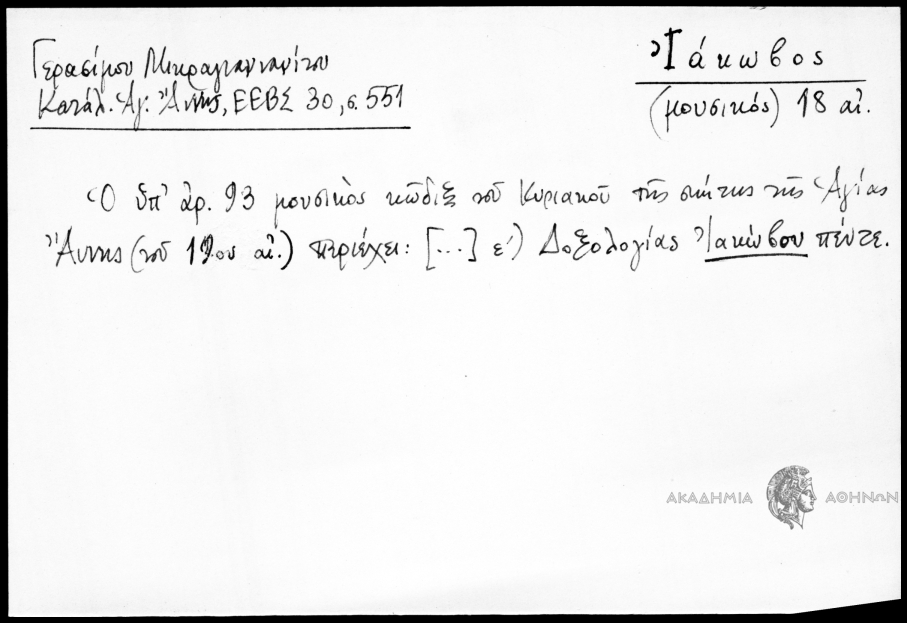 Γερασίμου Μικραγιαννανίτου
Κατάλ. Ἁγ. Ἄννης, ΕΕΒΣ 30, σ. 551
Ἰάκωβος
(μουσικός) 18 αἰ.
Ὁ ὑπ' ἀρ. 93 μουσικὸς κῶδιξ τοῦ Κυριακοῦ τῆς σκήτης τῆς Ἁγίας
Ἄννης (τοῦ 19ου αἰ.) περιέχει: [...] ε') Δοξολογίας Ἰακώβου πέντε.
ΑΚΑΔΗΜΙΑ ΑΘΗΝΩΝ